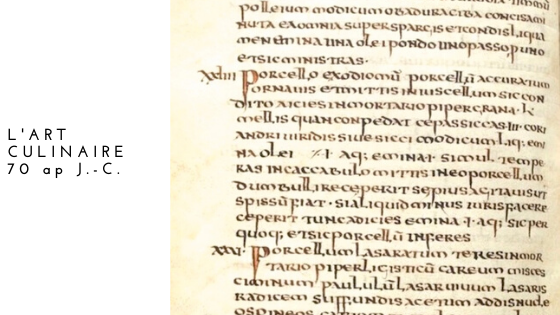 L'ART
CULINAIRE
70 ap J.-C.
polleium modicum
ea omnia et condis liqua
men emina una olei pondo uno passo p uno
et sic ministras·
xxiiii Porcello porcellū accuratum
ornauis et mittis in iuscellum sic con
dito aicies in mortario piper grana· L
mellis quan conpedat cepas siccas iii· cori
andri uiridis siue sicci modicum liq· emi
na olei aq; emina·I· simul tempe
ras in caccabulo mittis in eo porcellum
dum bullire ceperit sepius agitauis ut
spissū fiat· si aliquid minus iuris facere
ceperit tunc adicies emina ·I· aq; sic per
quoq; et sic porcellū inferes
xxv· Porcellum lasaratum teres in mor
tario piper ligisticū careum misces
ciminum paululū lasar uiuum lasaris
radicem suffundis acetum addis nucle
os pineos